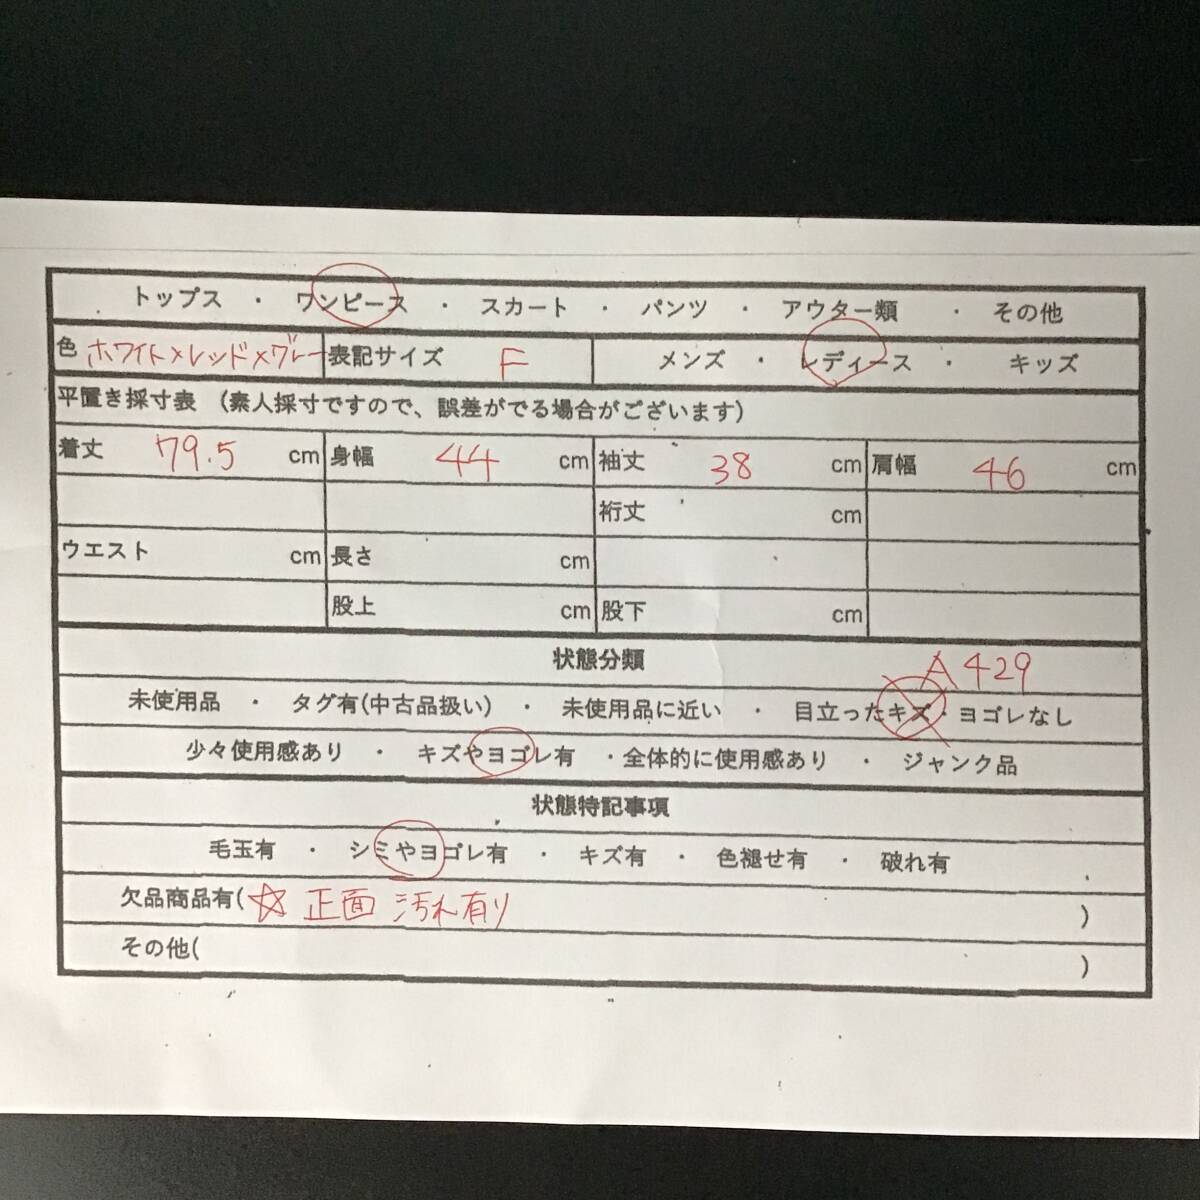 トップス ・ ワンピース ・ スカート ・ パンツ ・ アウター類 ・ その他
色 ホワイト×レッド×グレー 表記サイズ F メンズ ・ レディース ・ キッズ
平置き採寸表 (素人採寸ですので、誤差がでる場合がございます)
着丈 79.5 cm 身幅 44 cm 袖丈 38 cm 肩幅 46 cm
裄丈 cm
ウエスト cm 長さ cm
股上 cm 股下 cm
状態分類 A429
未使用品 ・ タグ有(中古品扱い) ・ 未使用品に近い ・ 目立ったキズ・ヨゴレなし
少々使用感あり ・ キズやヨゴレ有 ・全体的に使用感あり ・ ジャンク品
状態特記事項
毛玉有 ・ シミやヨゴレ有 ・ キズ有 ・ 色褪せ有 ・ 破れ有
欠品商品有(☆ 正面 汚れ有り )
その他( )